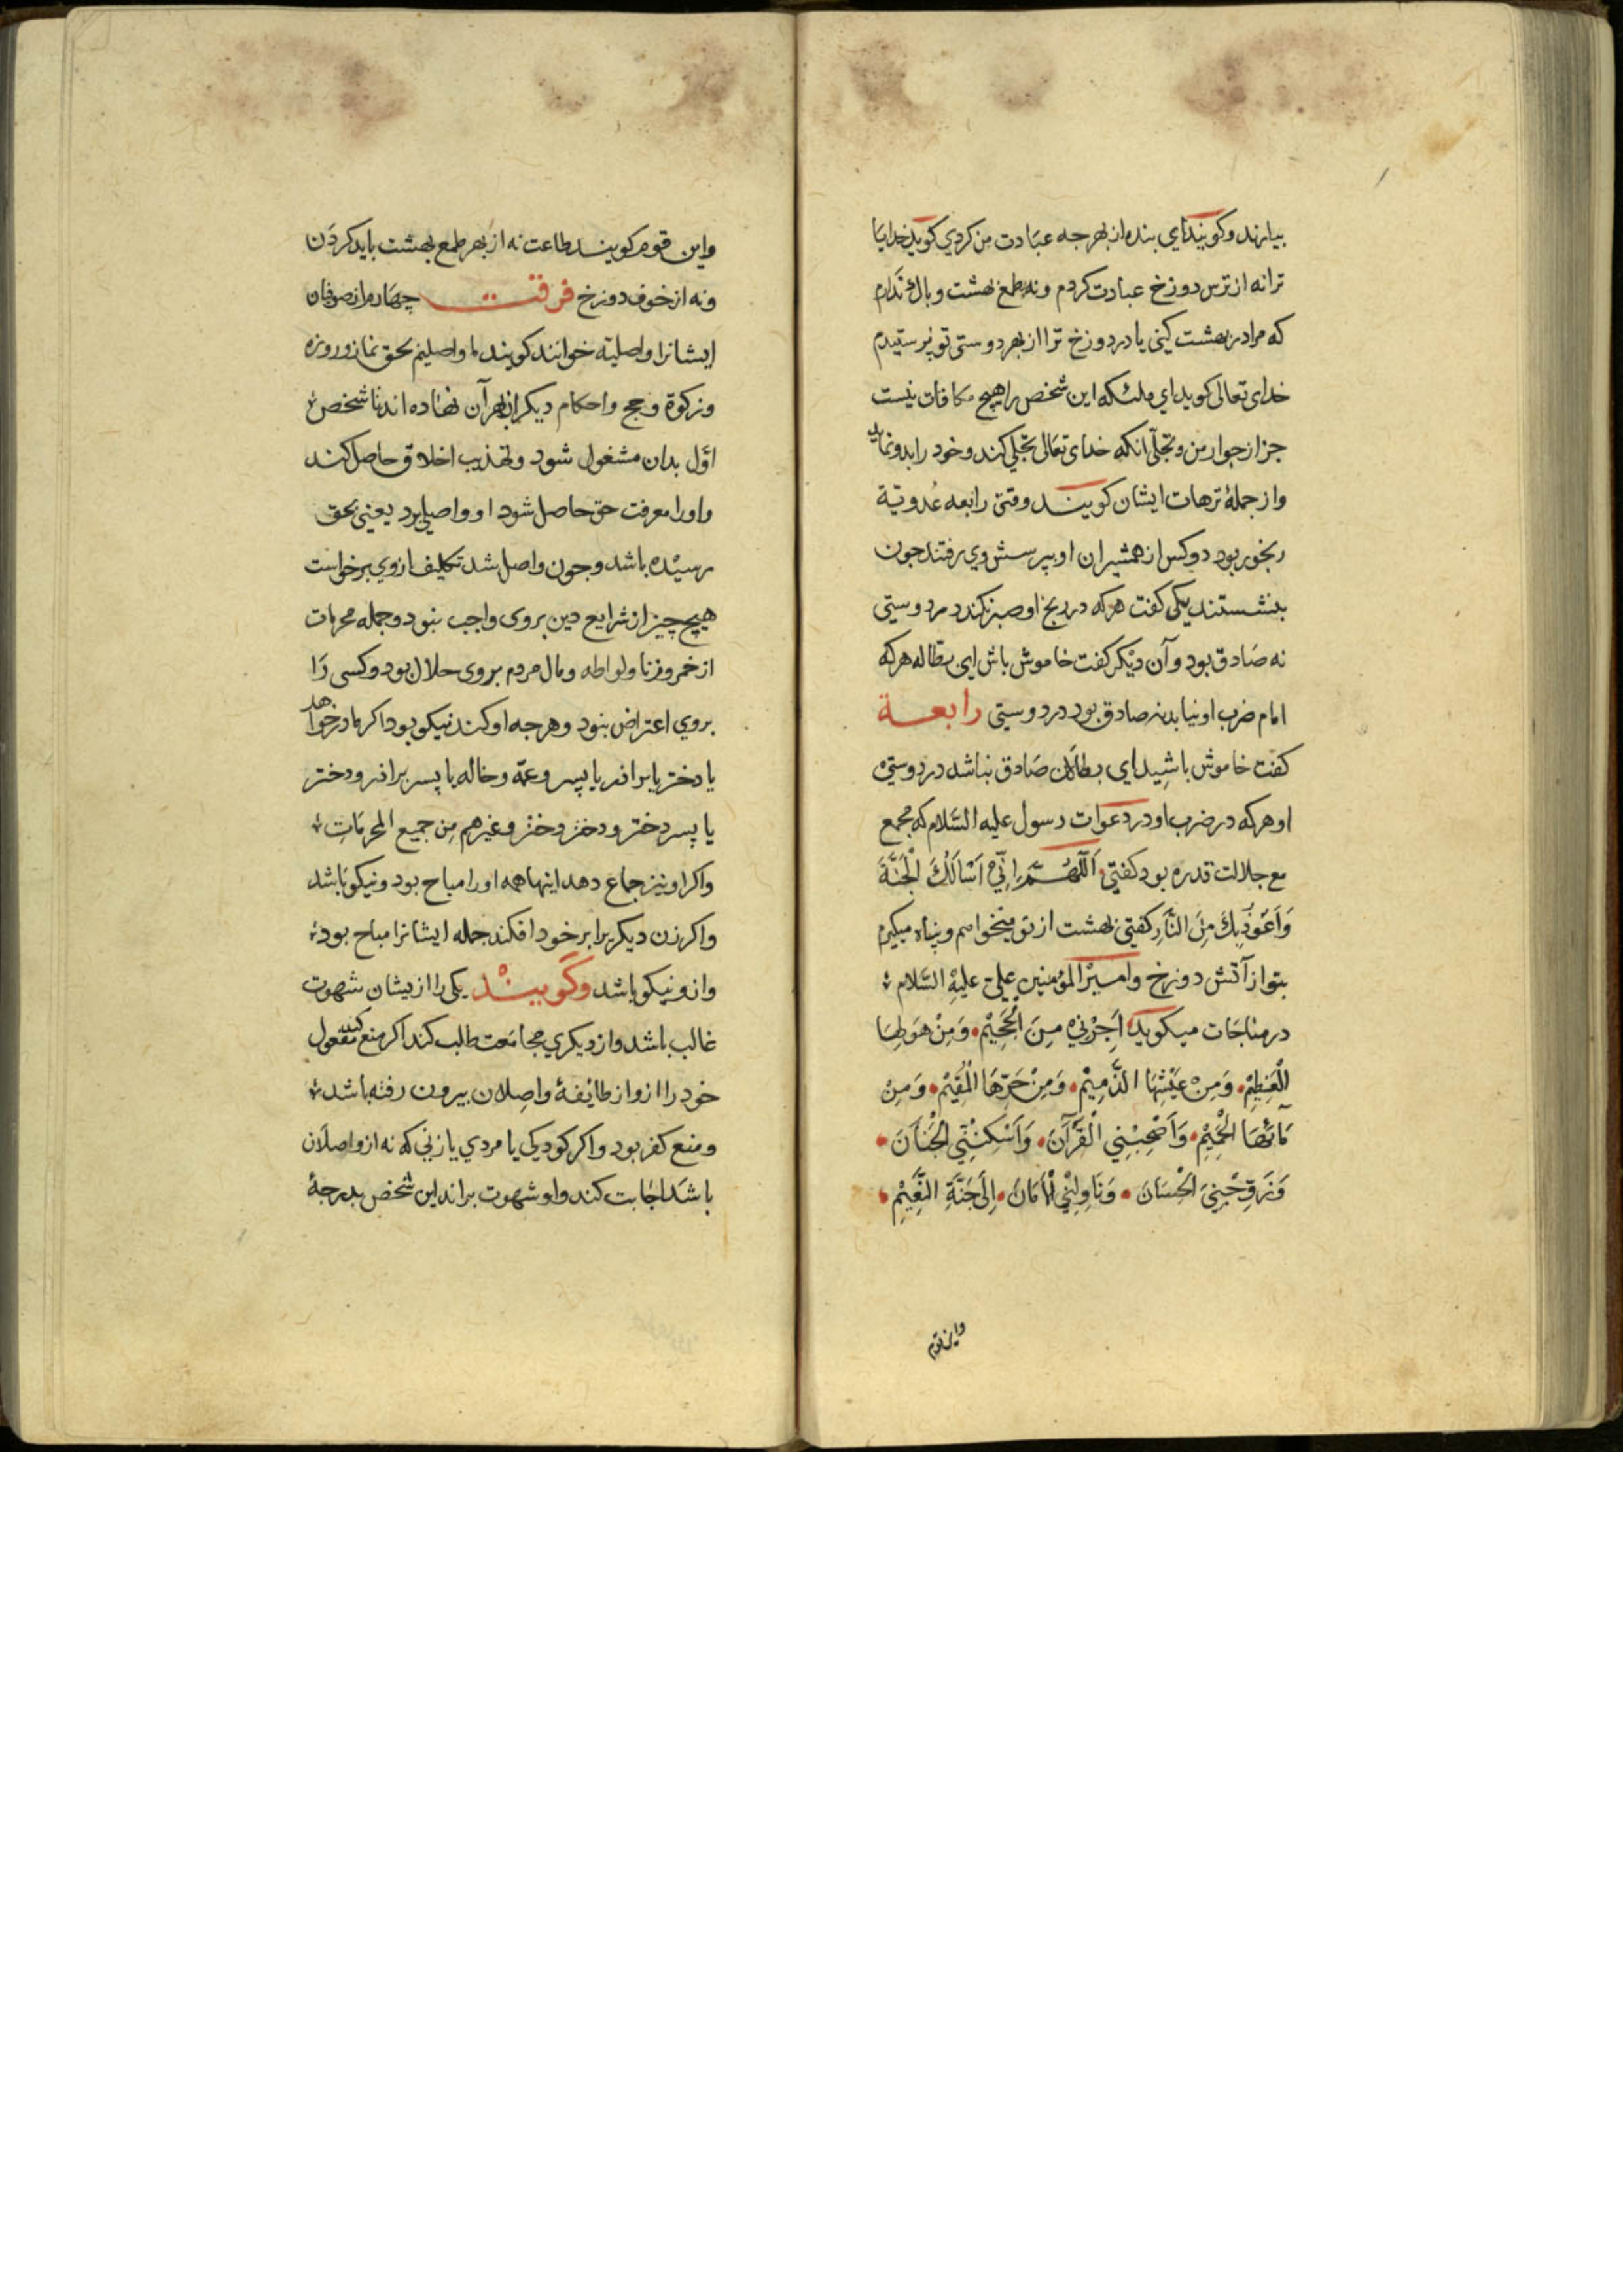 بیارند و کویند ای بنده از بهر جه عبادت من کردی کوید خدایا
ترا نه از ترس دوزخ عبادت کردم و نه بطمع بهشت و باک ندارم
که مرا در بهشت کنی یا در دوزخ ترا از بهر دوستی تو پرستیدم
خدای تعالی کوید ای ملئکه این شخص را هیچ مکافات نیست
جز از جوار من و تجلّی انکه خدای تعالی تجلّی کند و خود را بدو نماید
و از جملهٔ ترهات ایشان کویند وقتی رابعه عُدویّة
رنجور بود دو کس از همشیران او بپرسش وی رفتند جون
بنشستند یکی کفت هرکه در رنج او صبر نکند در دوستی
نه صَادق بود و آن دیکر کفت خاموش باش ای بطاله هرکه
امام ضرب او نیابد نه صادق بود در دوستی رابعة
کفت خاموش باشید ای بطالان صَادق نباشد در دوستی
او هرکه در ضرب او در دعوات رسول علیه السّلام که مجمع
مع جلالت قدره بود کفتی اَللّهُمَّ اِنّی اَسْاَلُكَ الْجَنَّةَ
وَاَعُوذُبِكَ مِنَ النَّارِ کفتی بهشت از تو میخواهم و پناه میکیرم
بتو از آتش دوزخ و امیرْ المؤمنین علیّ علیهِ السّلام
در مناجَات میکوید اَجِرْنِي مِنَ الْجَحِيْمِ وَمِنْ هَوَلِهَا
الْعَظِيْمِ وَمِنْ عَيْشِهَا الذَّمِيْمِ وَمِنْ حَرِّهَا الْمُقِيْمِ وَمِنْ
مَائهَا الْحَمِيْمِ وَاَصْحِبْنِي الْقُرْآنَ وَاَسْكِنِّي الْجَنَانَ
وَزَوِّجْنِيَ الْحِسَانَ وَنَاوِلْنِي الْاَمَانَ اِلَى جَنَّةِ النَّعِيْمِ
و این قوم
و این قوم کویند طاعت نه از بهر طمع بهشت باید کردن
و نه از خوف دوزخ فرقت چهارم از صوفیان
ایشانرا واصلیّه خوانند کویند ما واصلیم بحق نماز و روزه
و زکوة و حج و احکام دیکر از بهر آن نهاده اند تا شخص
اوّل بدان مشغول شود و تهذیب اخلاق حاصل کند
و او را معرفت حق حاصل شود او واصلی بود یعنی بحق
رسیده باشد و جون واصل شد تکلیف از وی برخواست
هیچ چیز از شرایع دین بروی واجب نبود و جمله محرمات
از خمر و زنا و لواطه و مال مردم بروی حلال بود و کسی رَا
بروی اعتراض نبود و هرجه او کند نیکو بود اکر مادر خواهد
یا دختر یا برادر یا پسر و عمّه و خاله یا پسر برادر و دختر
یا پسر دختر و دختر دختر و غیرهم من جمیع المحرمَاتِ
و اکر او نیز جماع دهد اینها همه او را مباح بود و نیکو باشد
و اکر زن دیکریرا بر خود افکند جمله ایشانرا مباح بود
و از و نیکو باشد وکویند یکی را از یشان شهوت
غالب باشد و از دیکری مجامَعت طلب کند اکر منع کند مفعول
خود را از و از طایفهٔ واصلان بیرون رفته باشد
و منع کفر بود و اکر کودکی یا مردی یا زنی که نه از واصلان
باشد اجابت کند و او شهوت براند این شخص بدرجهٔ